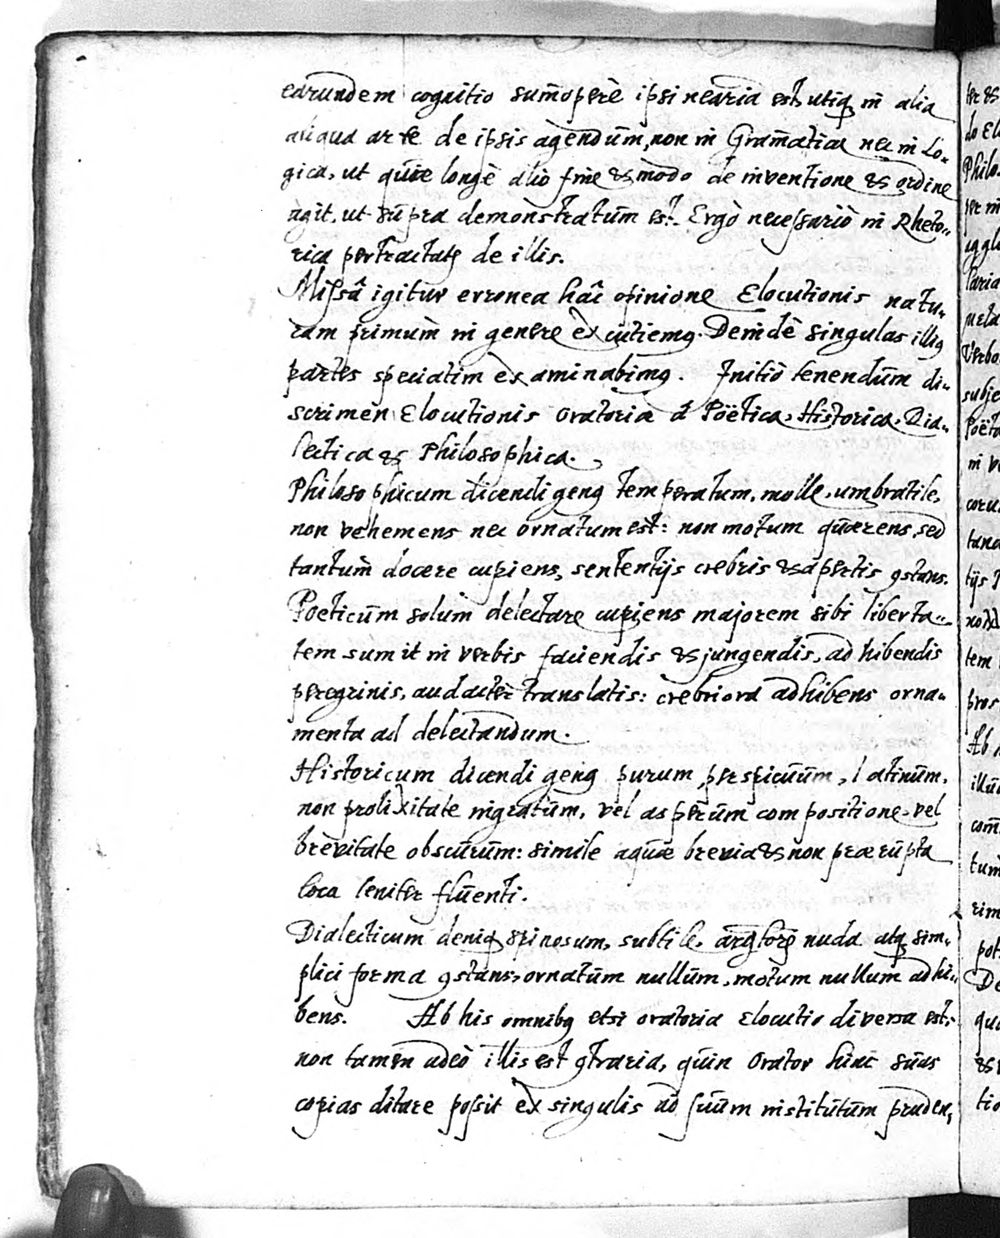 earundem cognitio summoperè ipsi neāria est, utiq in alia
aliqua arte de ipsis agendum, non in Gram̄atica nec in Lo-
gica, ut quæ longè alio fine & modo de inventione & ordine
agit, ut supra demonstratum est. Ergò necessariò in Rheto-
rica pertractatq de illis.
Missâ igitur erronea hac opinione Elocutionis natu-
ram primum in genere excutiemq. Deindè singulas illiq
partes speciatim examinabimq. Initiò tenendum di-
scrimen Elocutionis Oratoriæ à Poëtica, Historica, Dia-
lectica & Philosophica.
Philosophicum dicendi genq temperatum, molle, umbratile,
non vehemens nec ornatum est: non motum quærens, sed
tantum docere cupiens, sententijs crebris & apertis 9stans.
Poeticum solum delectare cupiens majorem sibi liberta-
tem sumit in verbis faciendis & jungendis, adhibendis
peregrinis, audacter translatis: crebriora adhibens orna-
menta ad delectandum.
Historicum dicendi genq purum, perspicuum, latinum,
non prolixitate ingratum, vel asperum compositione, vel
brevitate obscurum: simile aquæ brevia & non prærupta
loca leniter fluenti.
Dialecticum deniq spinosum, subtile, nuda atq sim-
plici forma 9stans, ornatum nullum, motum nullum adhi-
bens. Ab his omnibq etsi oratoria Elocutio diversa est;
non tamen adeò illis est 9traria, quin Orator hinc suas
copias ditare possit ex singulis ad suum institutum pruden,